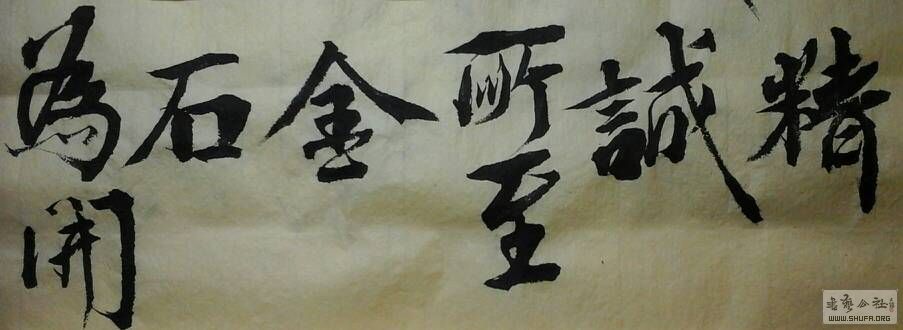 精
誠
所至
金
石
為開
书艺公社
WWW.SHUFA.ORG